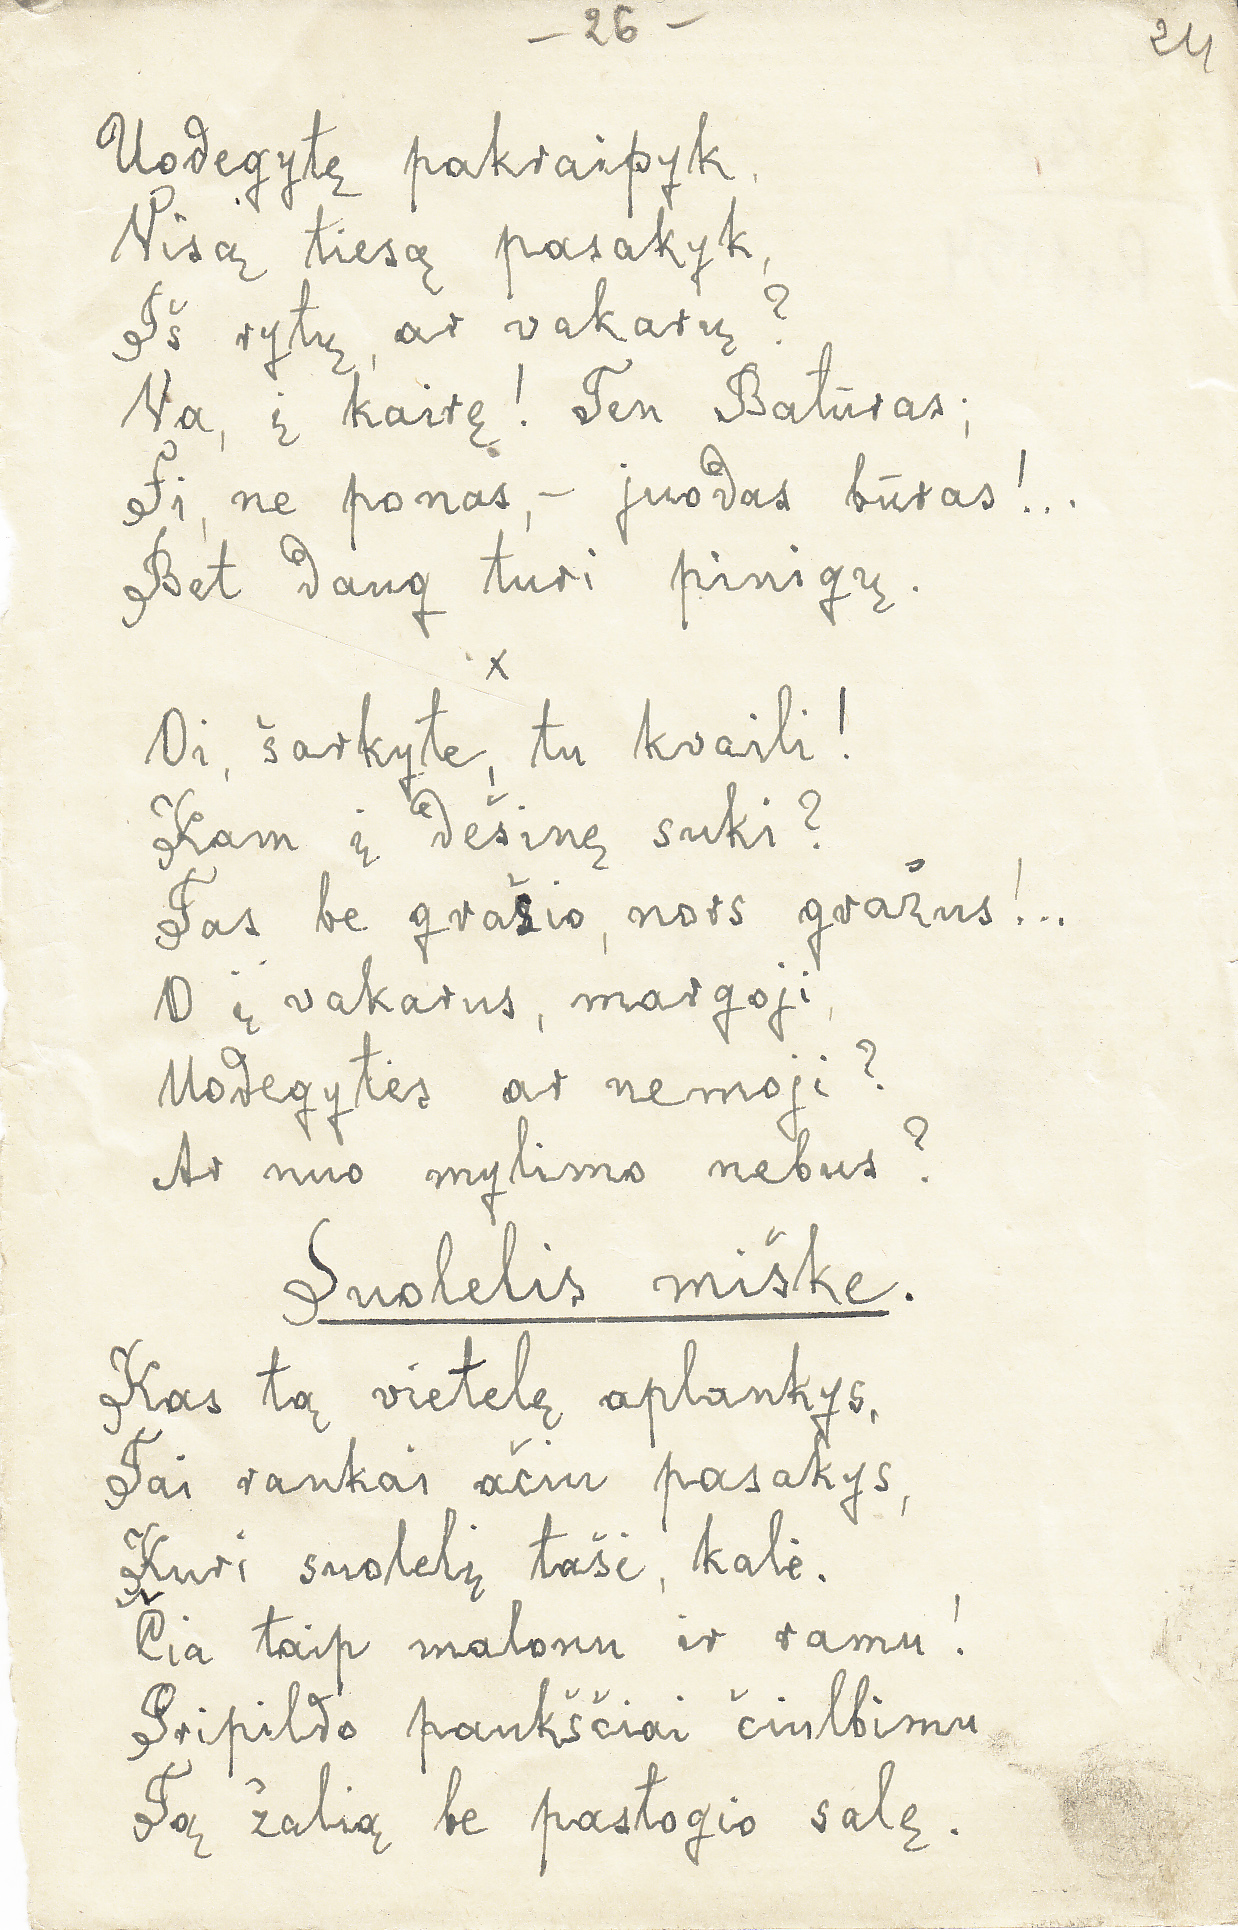 – 26 –
24
Uodegytę pakraipyk,
Visą tiesą pasakyk,
Iš rytų, ar vakarų?
Va, į kairę! Ten Batūras;
Fi, ne ponas, – juodas būras!...
Bet daug turi pinigų.
x
Oi, šarkyte, tu kvaili!
Kam į dešinę suki?
Tas be grašio, nors gražus!...
O į vakarus, margoji,
Uodegytės ar nemoji?
Ar nuo mylimo nebus?
Suolelis miške.
Kas tą vietelę aplankys,
Tai rankai ačiu pasakys,
Kuri suolelį tašė, kalė.
Čia taip malonu ir ramu!
Pripildo paukščiai čiulbimu
Tą žalią be pastogio salę.